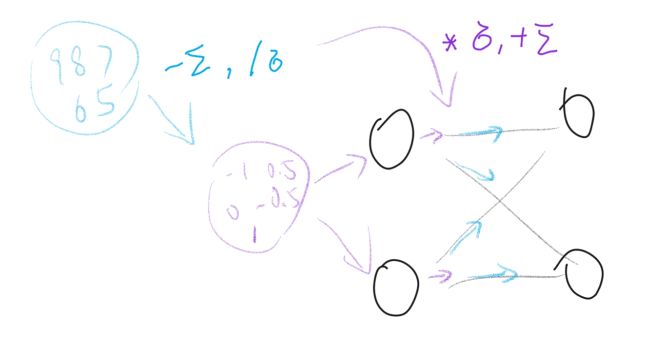 987
65
-Σ, /õ
* õ, +Σ
-1 0.5
0 -0.5
1